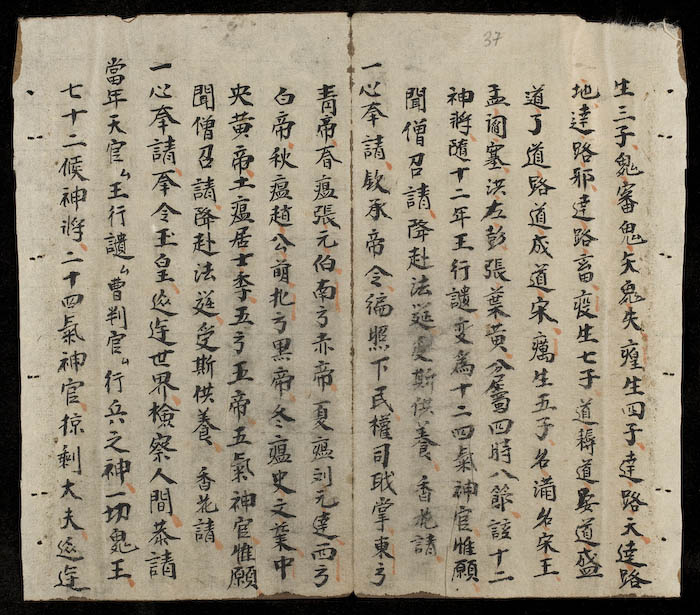 37
生三子鬼審鬼矢鬼失瘟生四子達路天達路
地達路邪達路畜疫生七子道耨道晏道盛
道了道路道成道宋癘生五子名滿名宋王
孟阎塞洪左彭張葉黄分屬四時八節該十二
神將随十二年王行譴变爲十二四氣神官惟願
聞僧召請降赴法筵受斯供養 香花請
一心奉請敛承帝令徧照下民權司戢掌東亏
青帝春瘟張元伯南亏赤帝夏瘟刘元達西亏
白帝秋瘟趙公萌北亏黑帝冬瘟史文業中
央黄帝土瘟居士李五亏五帝五氣神官惟願
聞僧召請降赴法筵受斯供養 香花請
一心奉請奉令玉皇巡遊世界檢察人間恭請
當年天官厶王行譴厶曹判官厶行兵之神一切鬼王
七十二候神將二十四氣神官掠剩大夫巡遊